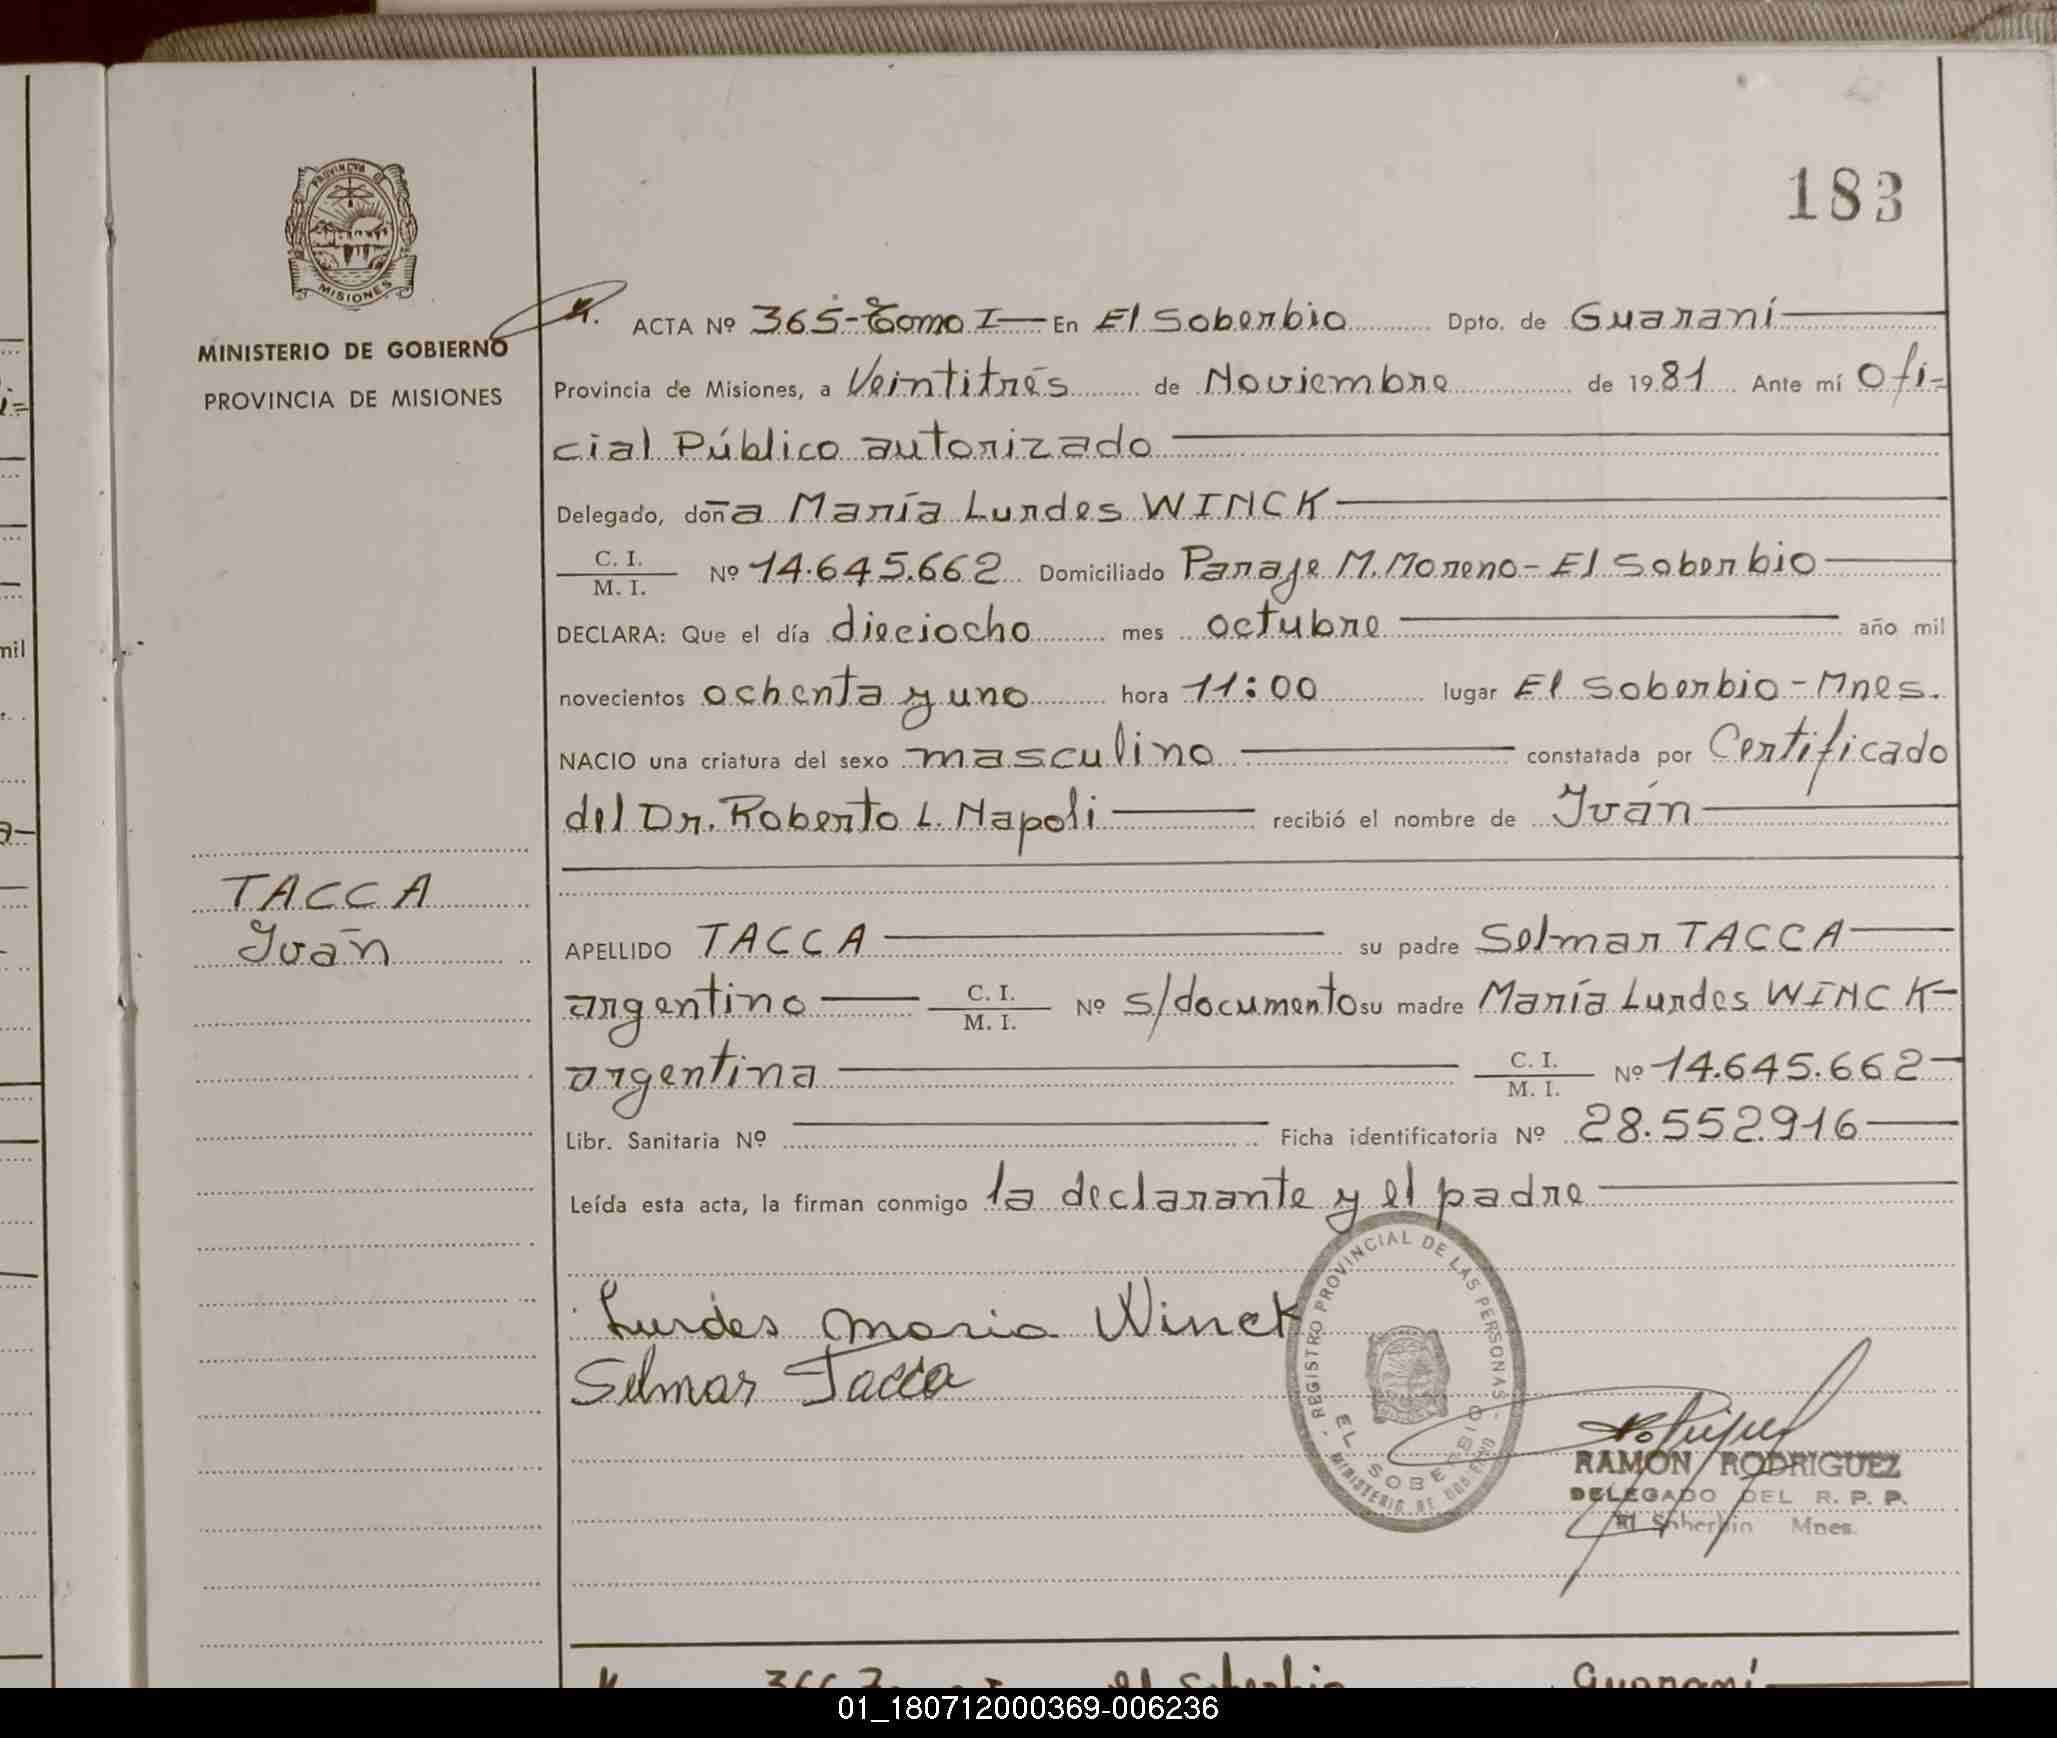 183
PROVINCIA DE
MISIONES
MINISTERIO DE GOBIERNO
PROVINCIA DE MISIONES
ACTA Nº 365-Tomo I En El Soberbio Dpto. de Guaraní
Provincia de Misiones, a Veintitrés de Noviembre de 1981 Ante mí Ofi=
cial Público autorizado
Delegado, doña María Lurdes WINCK
C. I.
M. I. Nº 14.645.662 Domiciliado Paraje M. Moreno - El Soberbio
DECLARA: Que el día dieciocho mes octubre año mil
novecientos ochenta y uno hora 11:00 lugar El Soberbio - Mnes.
NACIO una criatura del sexo masculino constatada por Certificado
del Dr. Roberto L. Napoli recibió el nombre de Iván
TACCA
Iván
APELLIDO TACCA su padre Selmar TACCA
argentino C. I. M. I. Nº s/documento su madre María Lurdes WINCK
argentina C. I. M. I. Nº 14.645.662
Libr. Sanitaria Nº Ficha identificatoria Nº 28.552.916
Leída esta acta, la firman conmigo la declarante y el padre
Lurdes Maria Winck
Selmar Tacca
- REGISTRO PROVINCIAL DE LAS PERSONAS -
EL SOBERBIO
MINISTERIO DE GOBIERNO
RAMON RODRIGUEZ
DELEGADO DEL R. P. P.
El Soberbio Mnes.
01_180712000369-006236